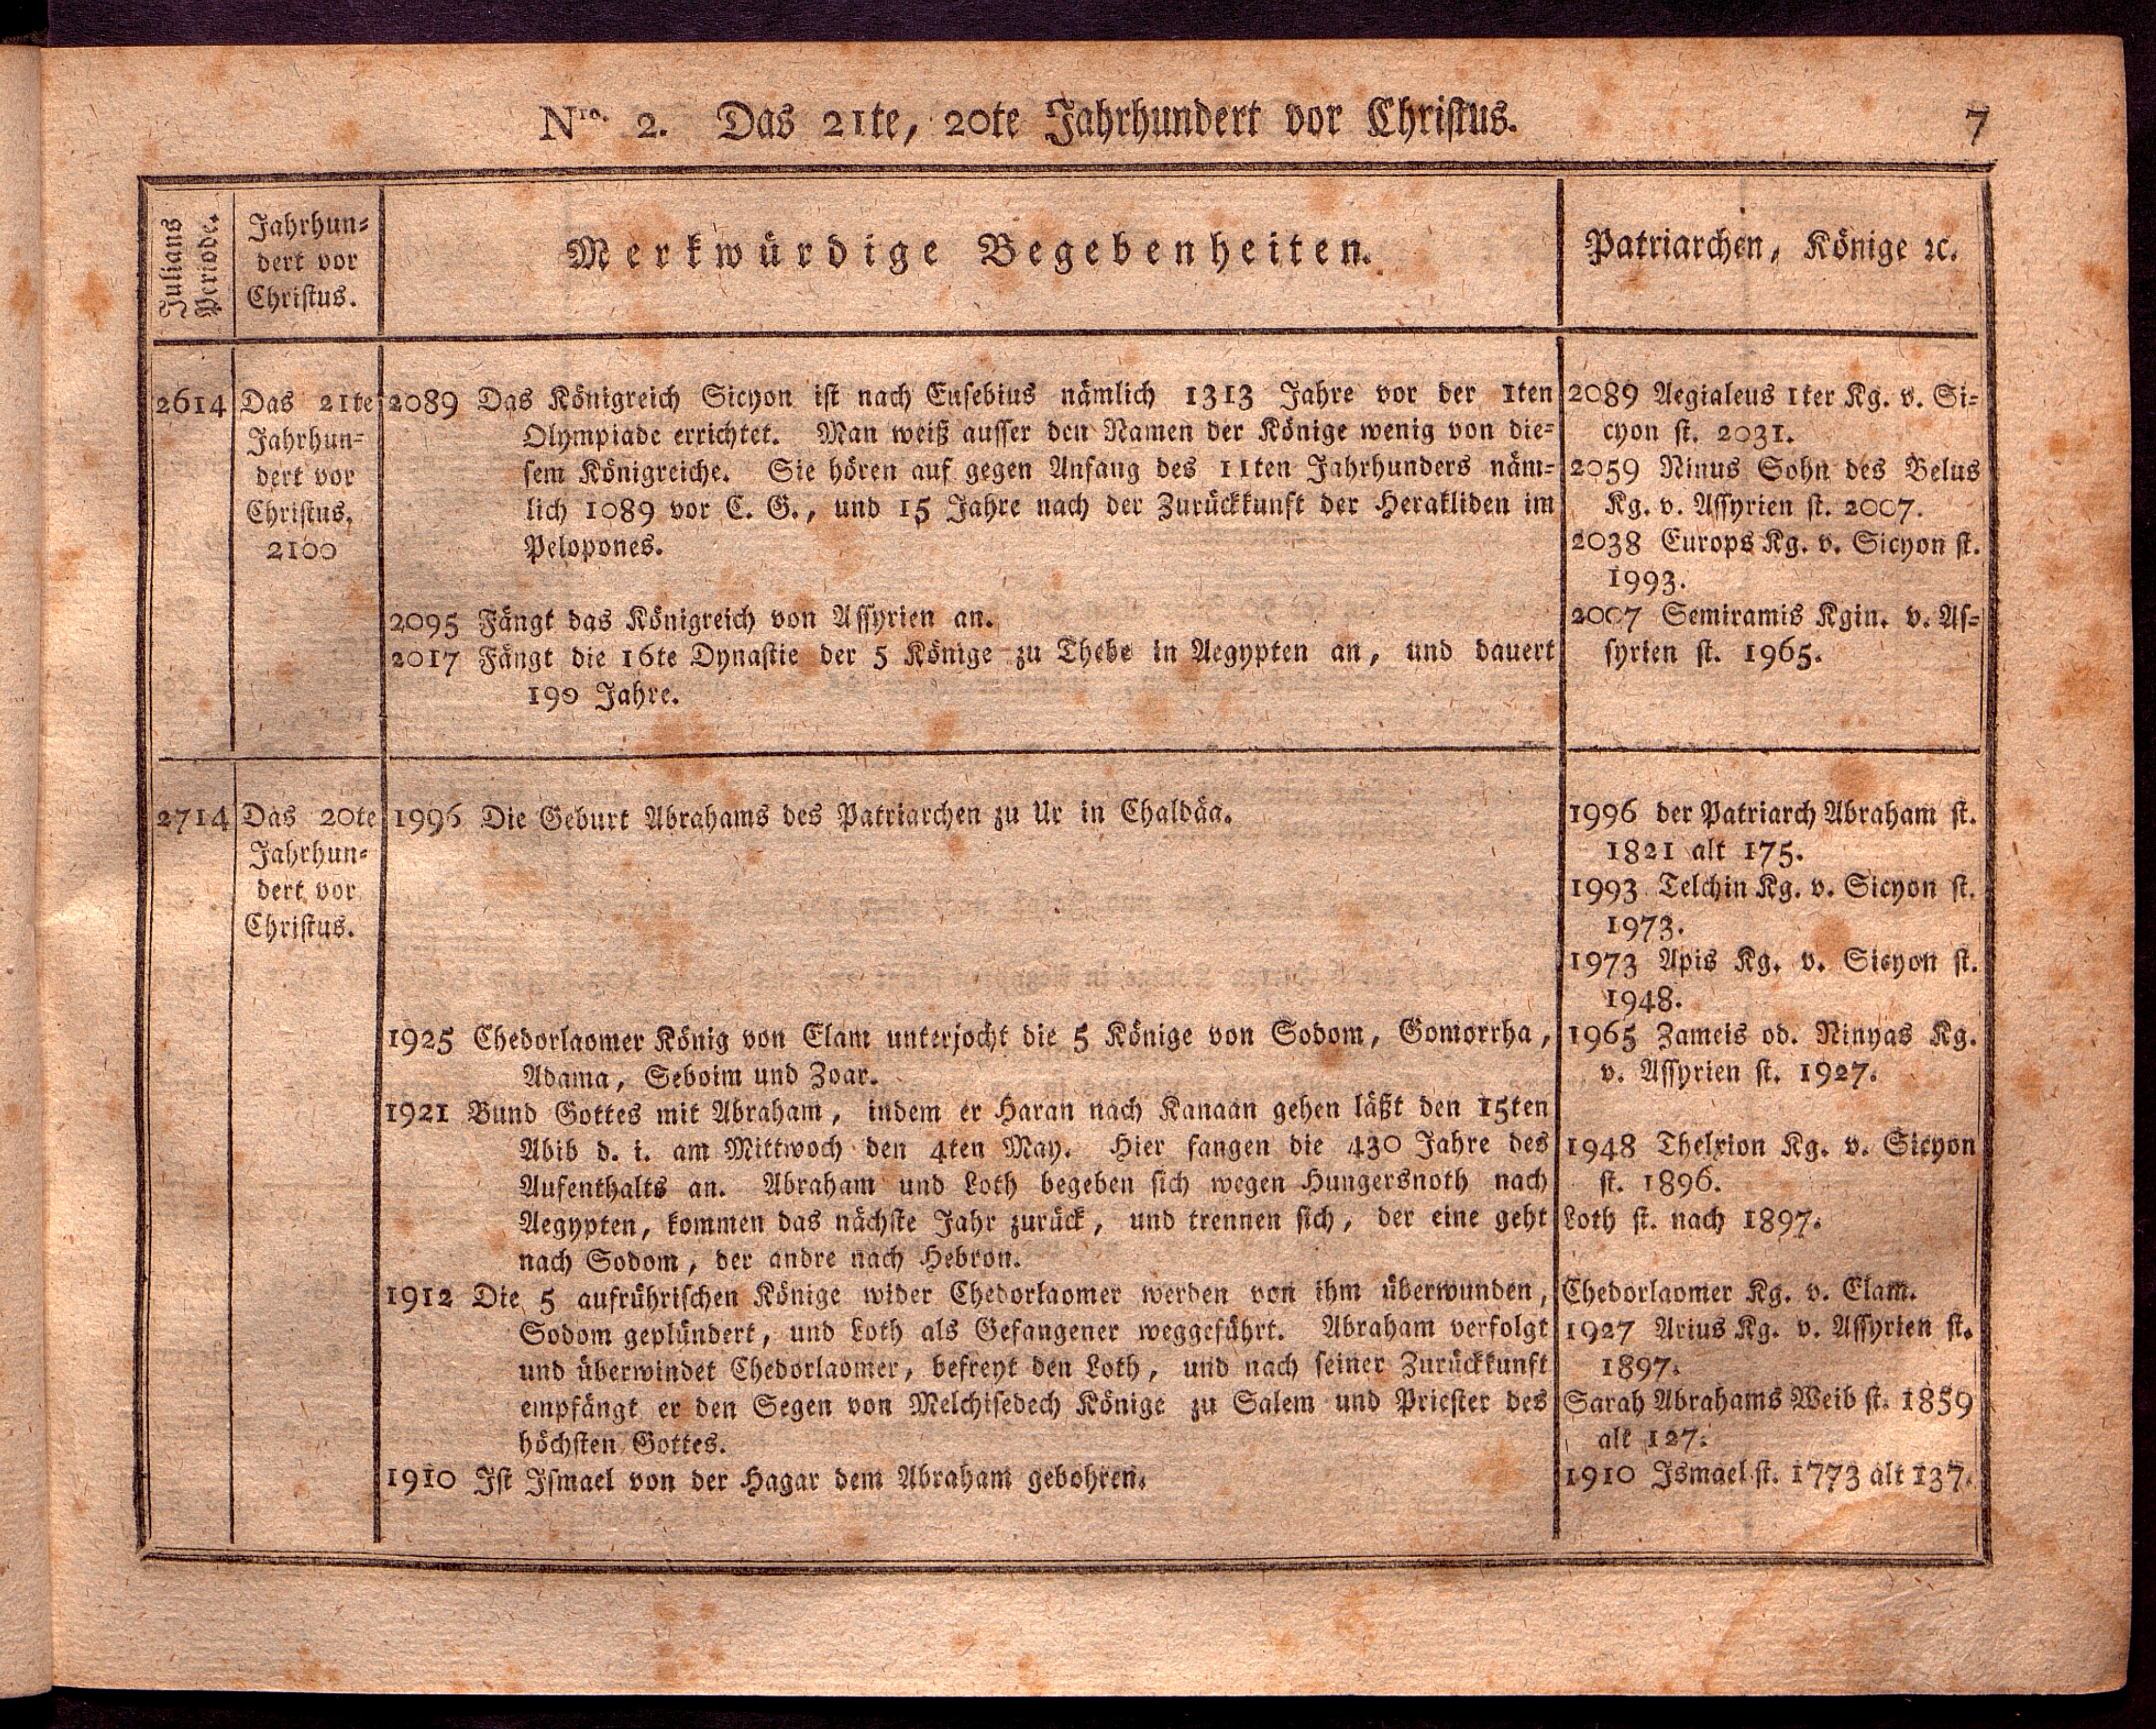 Nro. 2. Das 21te, 20te Jahrhundert vor Christus.
7
Julians
Periode.
Jahrhun-
dert vor
Christus.
Merkwürdige Begebenheiten.
Patriarchen, Könige ꝛc.
2614
Das 21te
Jahrhun-
dert vor
Christus,
2100
2089 Das Königreich Sicyon ist nach Eusebius nämlich 1313 Jahre vor der 1ten
Olympiade errichtet. Man weiß ausser den Namen der Könige wenig von die-
sem Königreiche. Sie hören auf gegen Anfang des 11ten Jahrhunders näm-
lich 1089 vor C. G., und 15 Jahre nach der Zurückkunft der Herakliden im
Pelopones.
2095 Fängt das Königreich von Assyrien an.
2017 Fängt die 16te Dynastie der 5 Könige zu Thebe in Aegypten an, und dauert
190 Jahre.
2089 Aegialeus 1ter Kg. v. Si-
cyon st. 2031.
2059 Ninus Sohn des Belus
Kg. v. Assyrien st. 2007.
2038 Europs Kg. v. Sicyon st.
1993.
2007 Semiramis Kgin. v. As-
syrien st. 1965.
2714
Das 20te
Jahrhun-
dert vor
Christus.
1996 Die Geburt Abrahams des Patriarchen zu Ur in Chaldäa.
1925 Chedorlaomer König von Elam unterjocht die 5 Könige von Sodom, Gomorrha,
Adama, Seboim und Zoar.
1921 Bund Gottes mit Abraham, indem er Haran nach Kanaan gehen läßt den 15ten
Abib d. i. am Mittwoch den 4ten May. Hier fangen die 430 Jahre des
Aufenthalts an. Abraham und Loth begeben sich wegen Hungersnoth nach
Aegypten, kommen das nächste Jahr zurück, und trennen sich, der eine geht
nach Sodom, der andre nach Hebron.
1912 Die 5 aufrührischen Könige wider Chedorlaomer werden von ihm überwunden,
Sodom geplündert, und Loth als Gefangener weggeführt. Abraham verfolgt
und überwindet Chedorlaomer, befreyt den Loth, und nach seiner Zurückkunft
empfängt er den Segen von Melchisedech Könige zu Salem und Priester des
höchsten Gottes.
1910 Ist Ismael von der Hagar dem Abraham gebohren.
1996 der Patriarch Abraham st.
1821 alt 175.
1993 Telchin Kg. v. Sicyon st.
1973.
1973 Apis Kg. v. Sicyon st.
1948.
1965 Zameis od. Ninyas Kg.
v. Assyrien st. 1927.
1948 Thelxion Kg. v. Sicyon
st. 1896.
Loth st. nach 1897.
Chedorlaomer Kg. v. Elam.
1927 Arius Kg. v. Assyrien st.
1897.
Sarah Abrahams Weib st. 1859
alt 127.
1910 Ismael st. 1773 alt 137.